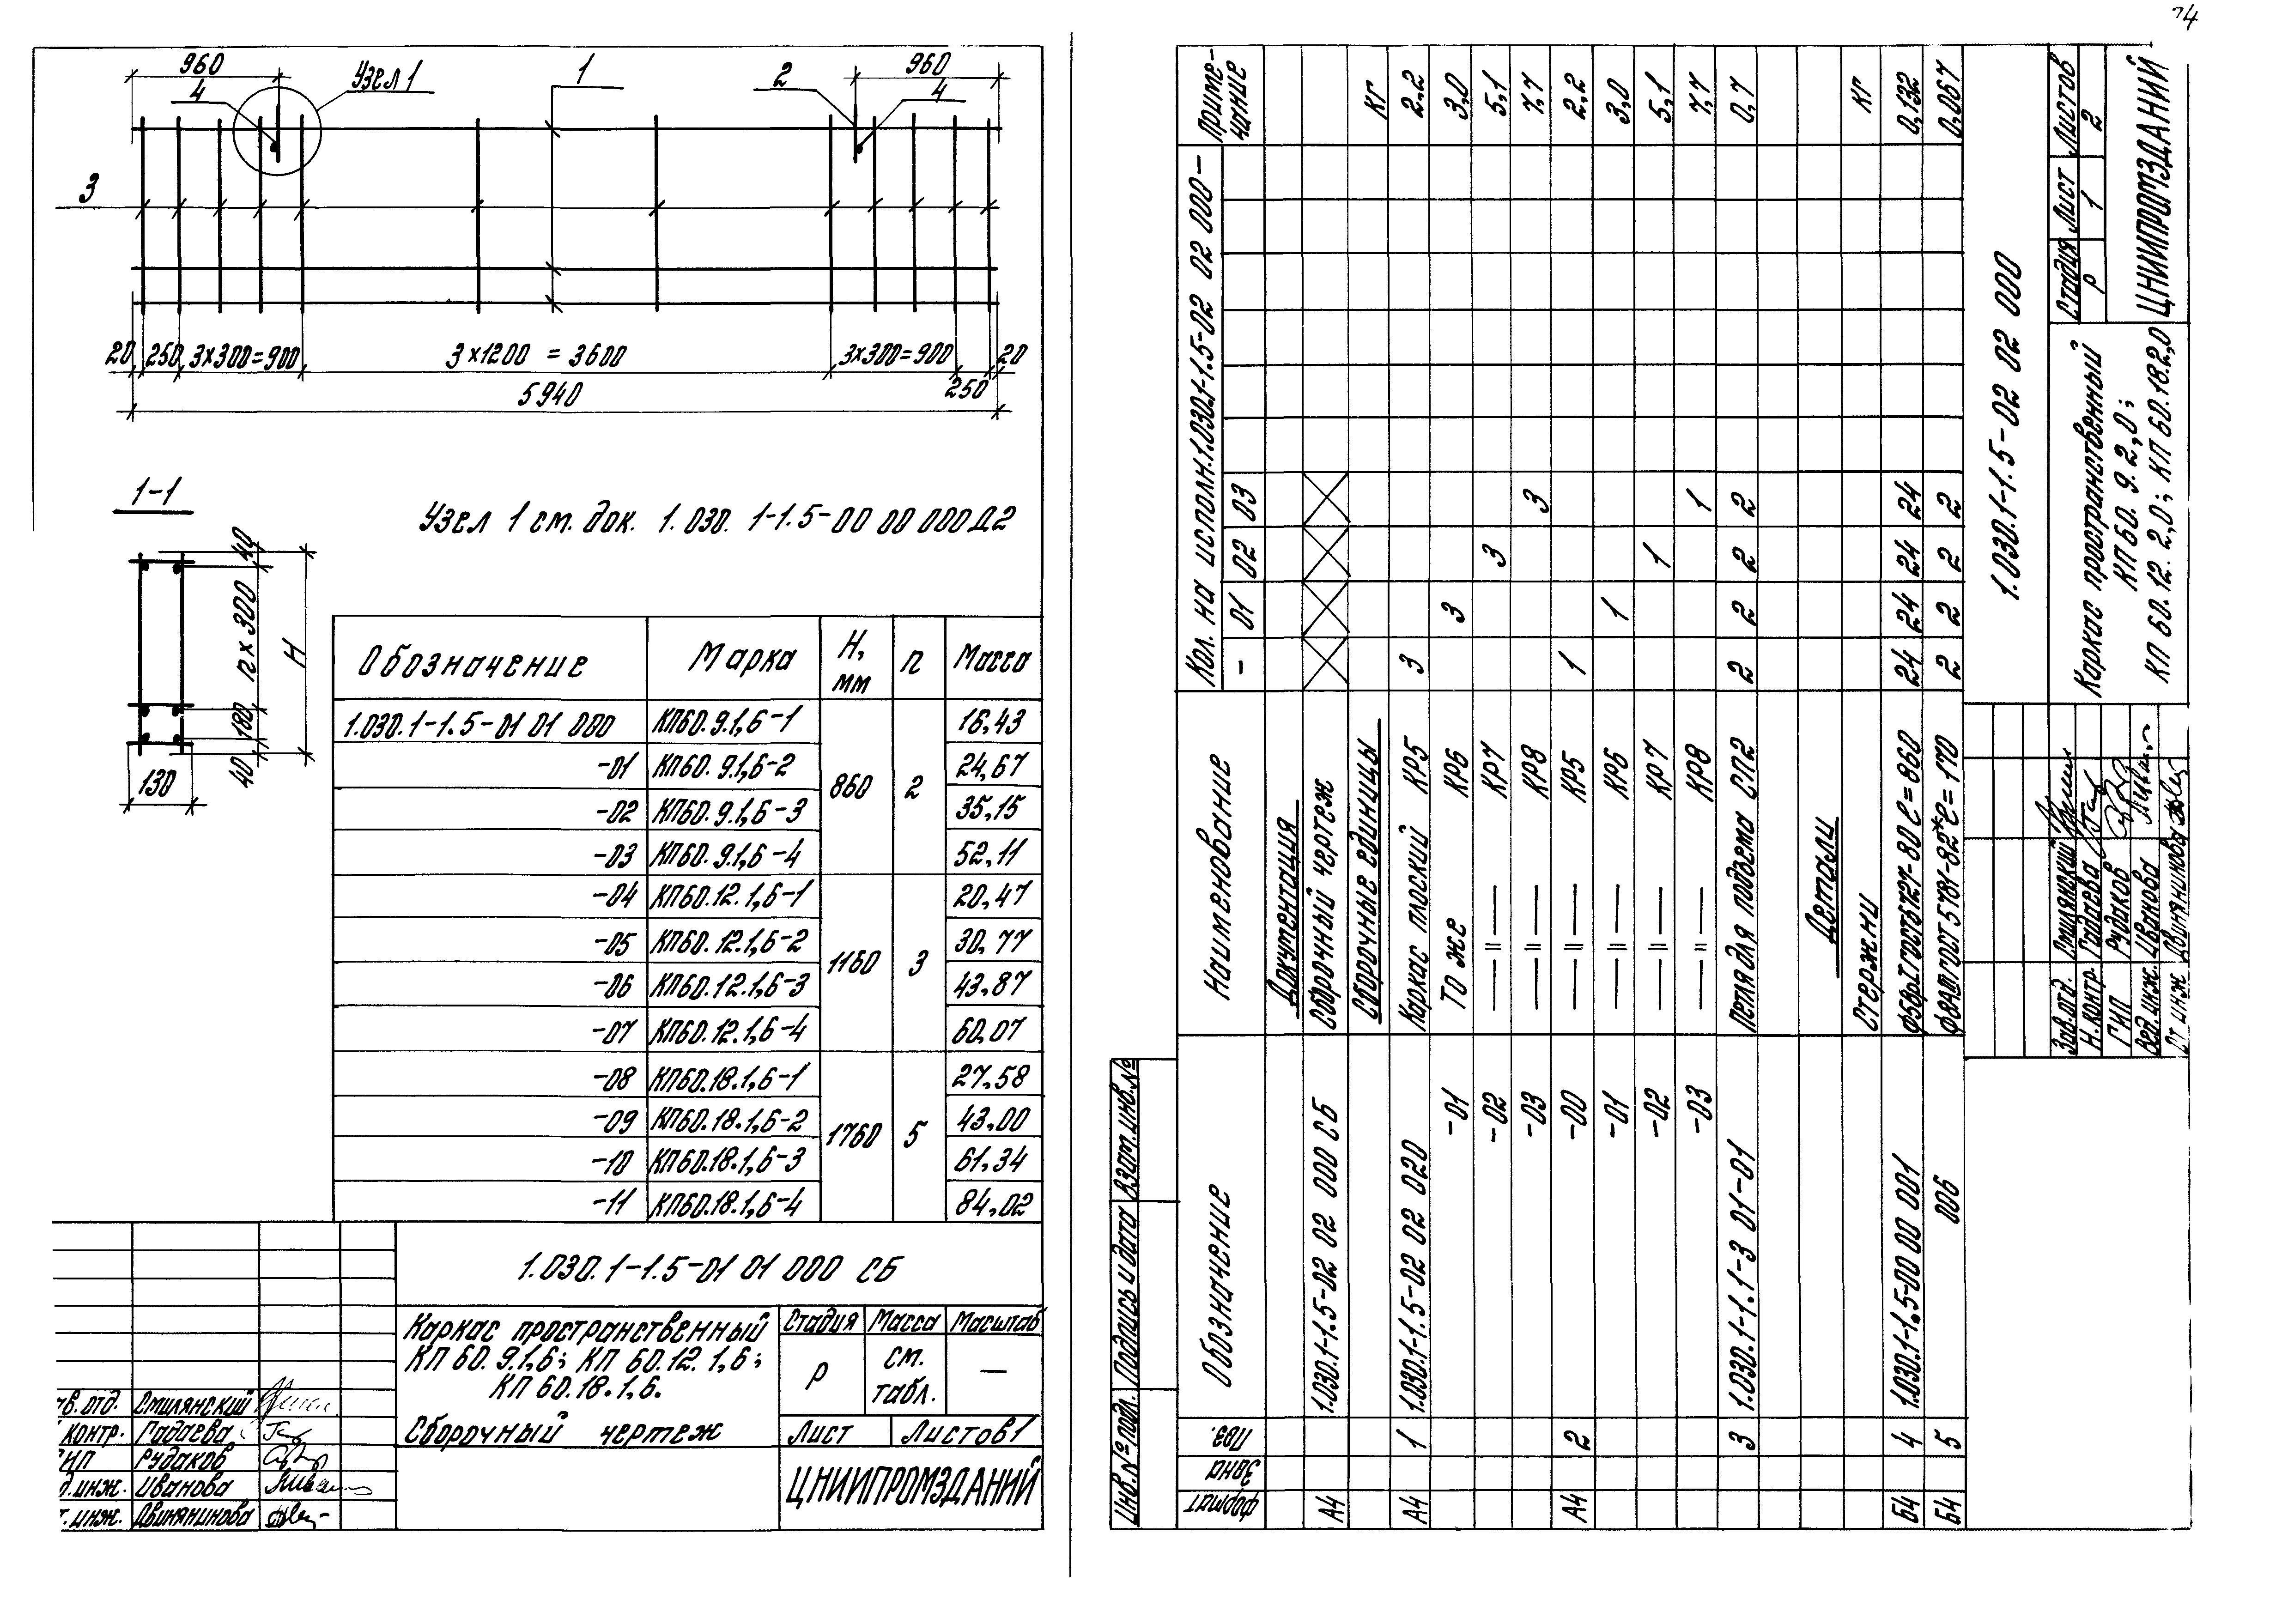 74
960
Узел 1
1
2
960
4
4
3
20 250 3х300=900 3х1200 = 3600 3х300=900 20
250
5940
1-1
Узел 1 см. док. 1.030.1-1.5-00 00 000Д2
40
n x 300
180
40
H
130
Обозначение Марка H, мм n Масса
1.030.1-1.5-01 01 000 КП60.9.1,6-1 860 2 16,43
-01 КП60.9.1,6-2 24,67
-02 КП60.9.1,6-3 35,15
-03 КП60.9.1,6-4 52,11
-04 КП60.12.1,6-1 1160 3 20,47
-05 КП60.12.1,6-2 30,77
-06 КП60.12.1,6-3 43,87
-07 КП60.12.1,6-4 60,07
-08 КП60.18.1,6-1 1760 5 27,58
-09 КП60.18.1,6-2 43,00
-10 КП60.18.1,6-3 61,34
-11 КП60.18.1,6-4 84,02
1.030.1-1.5-01 01 000 СБ
Каркас пространственный
КП 60.9.1,6; КП 60.12.1,6;
КП 60.18.1,6.
Сборочный чертеж
Стадия Масса Масштаб
Р см. табл. —
Лист Листов 1
ЦНИИПРОМЗДАНИЙ
ав.отд. Смилянский
контр. Гадаева
ГИП Рудаков
д.инж. Иванова
т.инж. Двинянинова
Формат Зона Поз. Обозначение Наименование Кол. на исполн. 1.030.1-1.5-02 02 000- Приме-чание
- 01 02 03
Документация
А4 1.030.1-1.5-02 02 000 СБ Сборочный чертеж
Сборочные единицы кг
А4 1 1.030.1-1.5-02 02 020 Каркас плоский КР5 3 2,2
-01 То же КР6 3 3,0
-02 — " — КР7 3 5,1
-03 — " — КР8 3 7,7
А4 2 -00 — " — КР5 1 2,2
-01 — " — КР6 1 3,0
-02 — " — КР7 1 5,1
-03 — " — КР8 1 7,7
3 1.030.1-1.1-3 01-01 Петля для подъема СП2 2 2 2 2 0,7
Детали
Стержни кг
Б4 4 1.030.1-1.5-00 00 001 Ф5ВрI ГОСТ6727-80 ℓ=860 24 24 24 24 0,132
Б4 5 006 Ф8АIII ГОСТ5781-82* ℓ=170 2 2 2 2 0,067
1.030.1-1.5-02 02 000
Зав.отд. Смилянский
Н.контр. Гадаева
ГИП Рудаков
Вед.инж. Иванова
Ст.инж Двинянинова
Каркас пространственный
КП 60.9.2,0;
КП 60.12.2,0; КП 60.18.2,0
Стадия Лист Листов
Р 1 2
ЦНИИПРОМЗДАНИЙ
Инв.№ подл. Подпись и дата Взам.инв.№